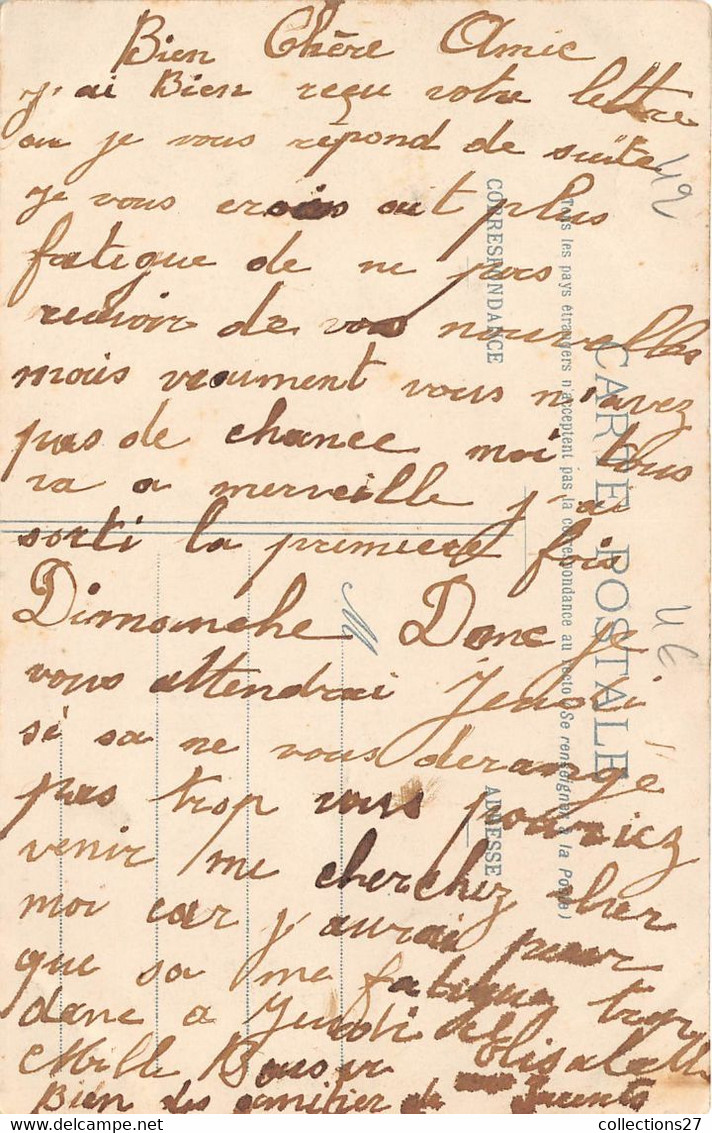 Bien Chère Amie
j'ai Bien reçu votre lettre
au je vous répond de suite
je vous crois ait plus
fatigue de ne pas
recevoir de vos nouvelles
mais vraument vous n'avez
pas de chance moi tous
va a merveille j'ai
sorti la premiere fois
Dimanche Donc je
vous attendrai Jeudi
si sa ne vous derange
pas trop vous pourriez
venir me cherchez cher
moi car j'aurai peur
que sa me fatigue trop
donc a Jeudi
Mille Baiser Elisabeth
Bien des amitier de Parents
CORRESPONDANCE
Tous les pays étrangers n'acceptent pas la correspondance au recto (Se renseigner à la Poste)
CARTE POSTALE
M
ADRESSE
42
46
collections27